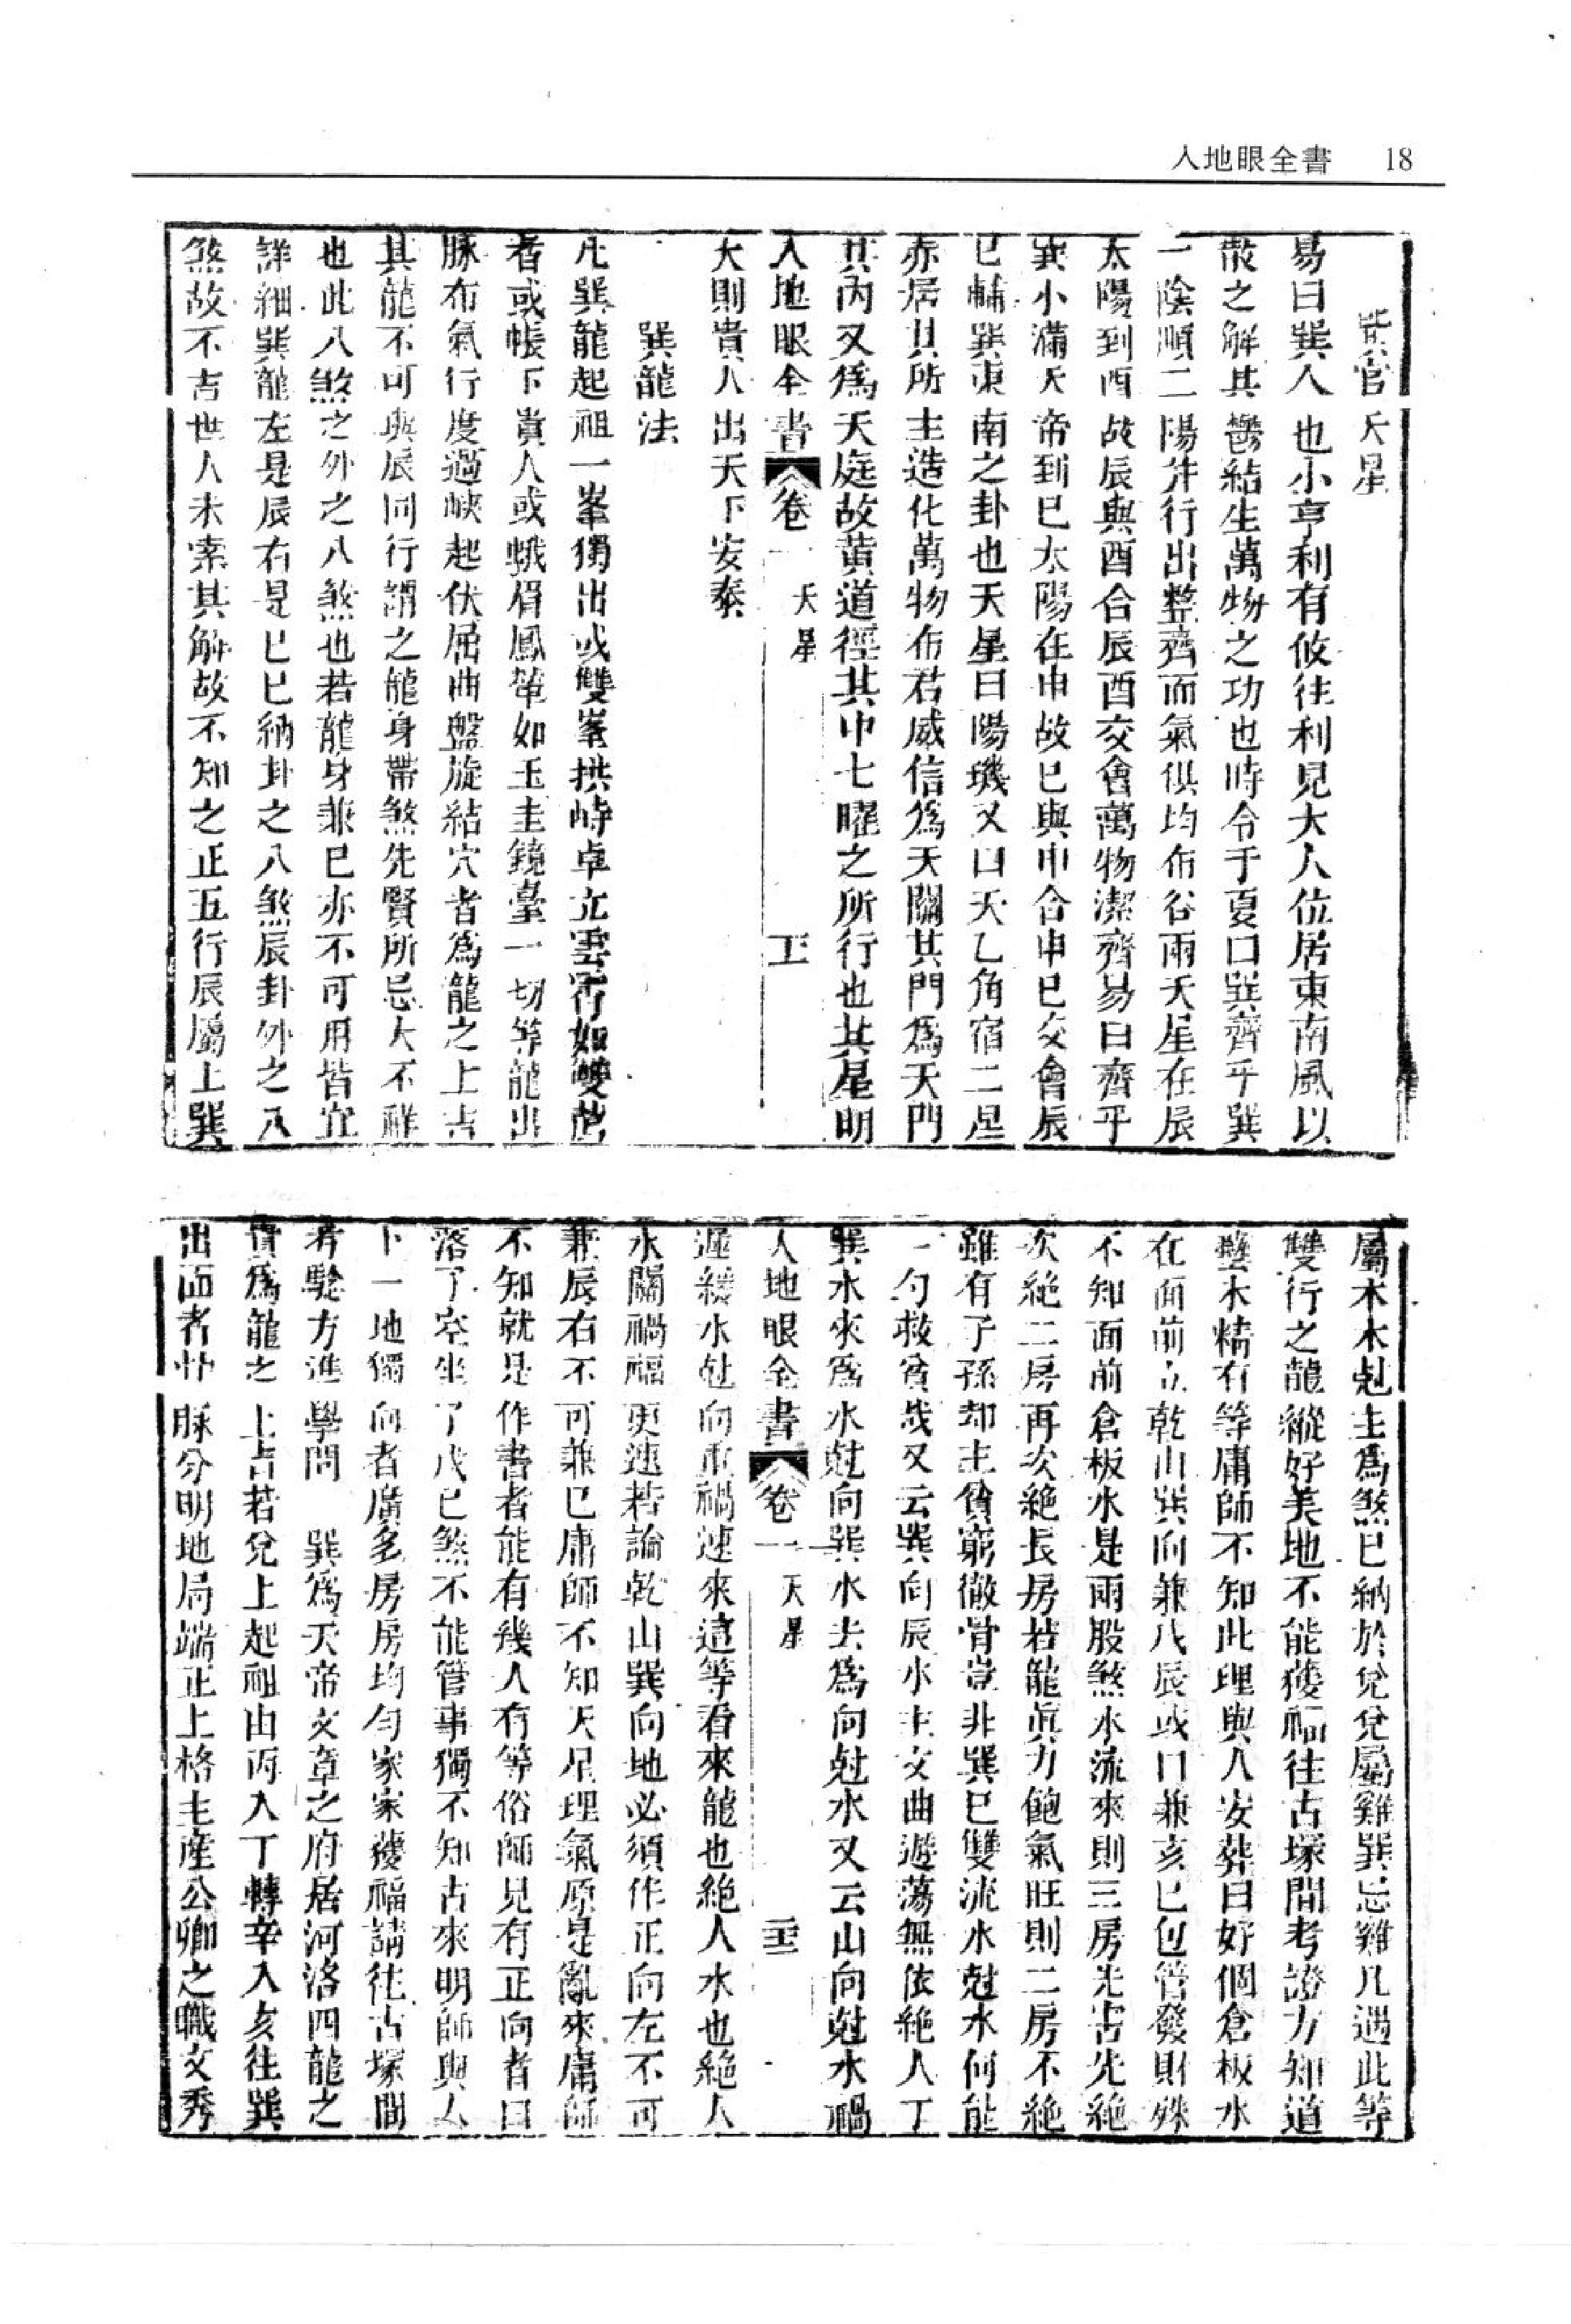 入地眼全書 18
巽宮天星
易曰巽入也小亨利有攸往利見大人位居東南風以
散之解其鬱結生萬物之功也時令于夏曰巽齊乎巽
一陰順二陽并行出整齊而氣俱均布谷雨天星在辰
太陽到酉故辰與酉合辰酉交會萬物潔齊易曰齊乎
巽小滿天帝到巳太陽在申故巳與申合申巳交會辰
巳輔巽東南之卦也天星曰陽璣又曰天乙角宿二星
赤居其所主造化萬物布君威信為天關其門為天門
其內又為天庭故黃道徑其中七曜之所行也其星明
入地眼全書 卷一 天星
大則貴人出天下安泰
一
巽龍法
凡巽龍起祖一峯獨出或雙峯拱峙卓立雲霄如雙薦
者或帳下貴人或蛾眉鳳輦如玉圭鏡臺一切等龍出
脉布氣行度過峽起伏屈曲盤旋結穴者為龍之上吉
其龍不可與辰同行謂之龍身帶煞先賢所忌大不祥
也此八煞之外之八煞也若龍身兼巳亦不可用皆宜
詳細巽龍左是辰右是巳巳納卦之八煞辰卦外之八
煞故不吉世人未索其解故不知之正五行辰屬土巽
屬木木尅土為煞巳納於兌兌屬雞巽忌雞凡遇此等
雙行之龍縱好美地不能獲福往古塚間考證方知道
蠥木精有等庸師不知此理與人安葬曰好個倉板水
在面前立乾山巽向兼戌辰或曰兼亥巳包管發財殊
不知面前倉板水是兩股煞水流來則三房先害先絕
次絕二房再次絕長房若龍眞力飽氣旺則二房不絕
雖有子孫却主貧窮徹骨豈非巽巳雙流水尅水何能
一勺救貧哉又云巽向辰水主文曲遊蕩無依絕人丁
巽水來為水尅向巽水去為向尅水又云山向尅水禍
入地眼全書 卷一 天星
遲緩水尅向重禍速來這等看來龍也絕人水也絕人
水關禍福更速若論乾山巽向地必須作正向左不可
兼辰右不可兼巳庸師不知天星理氣原是亂來庸師
不知就是作書者能有幾人有等俗師見有正向者曰
落了空坐了戊巳煞不能管事獨不知古來明師與人
下一地獨向者廣多房房均勻家家獲福請往古塚間
考騐方進學問 巽為天帝文章之府居河洛四龍之
貴為龍之上吉若兌上起祖由丙入丁轉辛入亥往巽
出面者竹脉分明地局端正上格主產公卿之職文秀